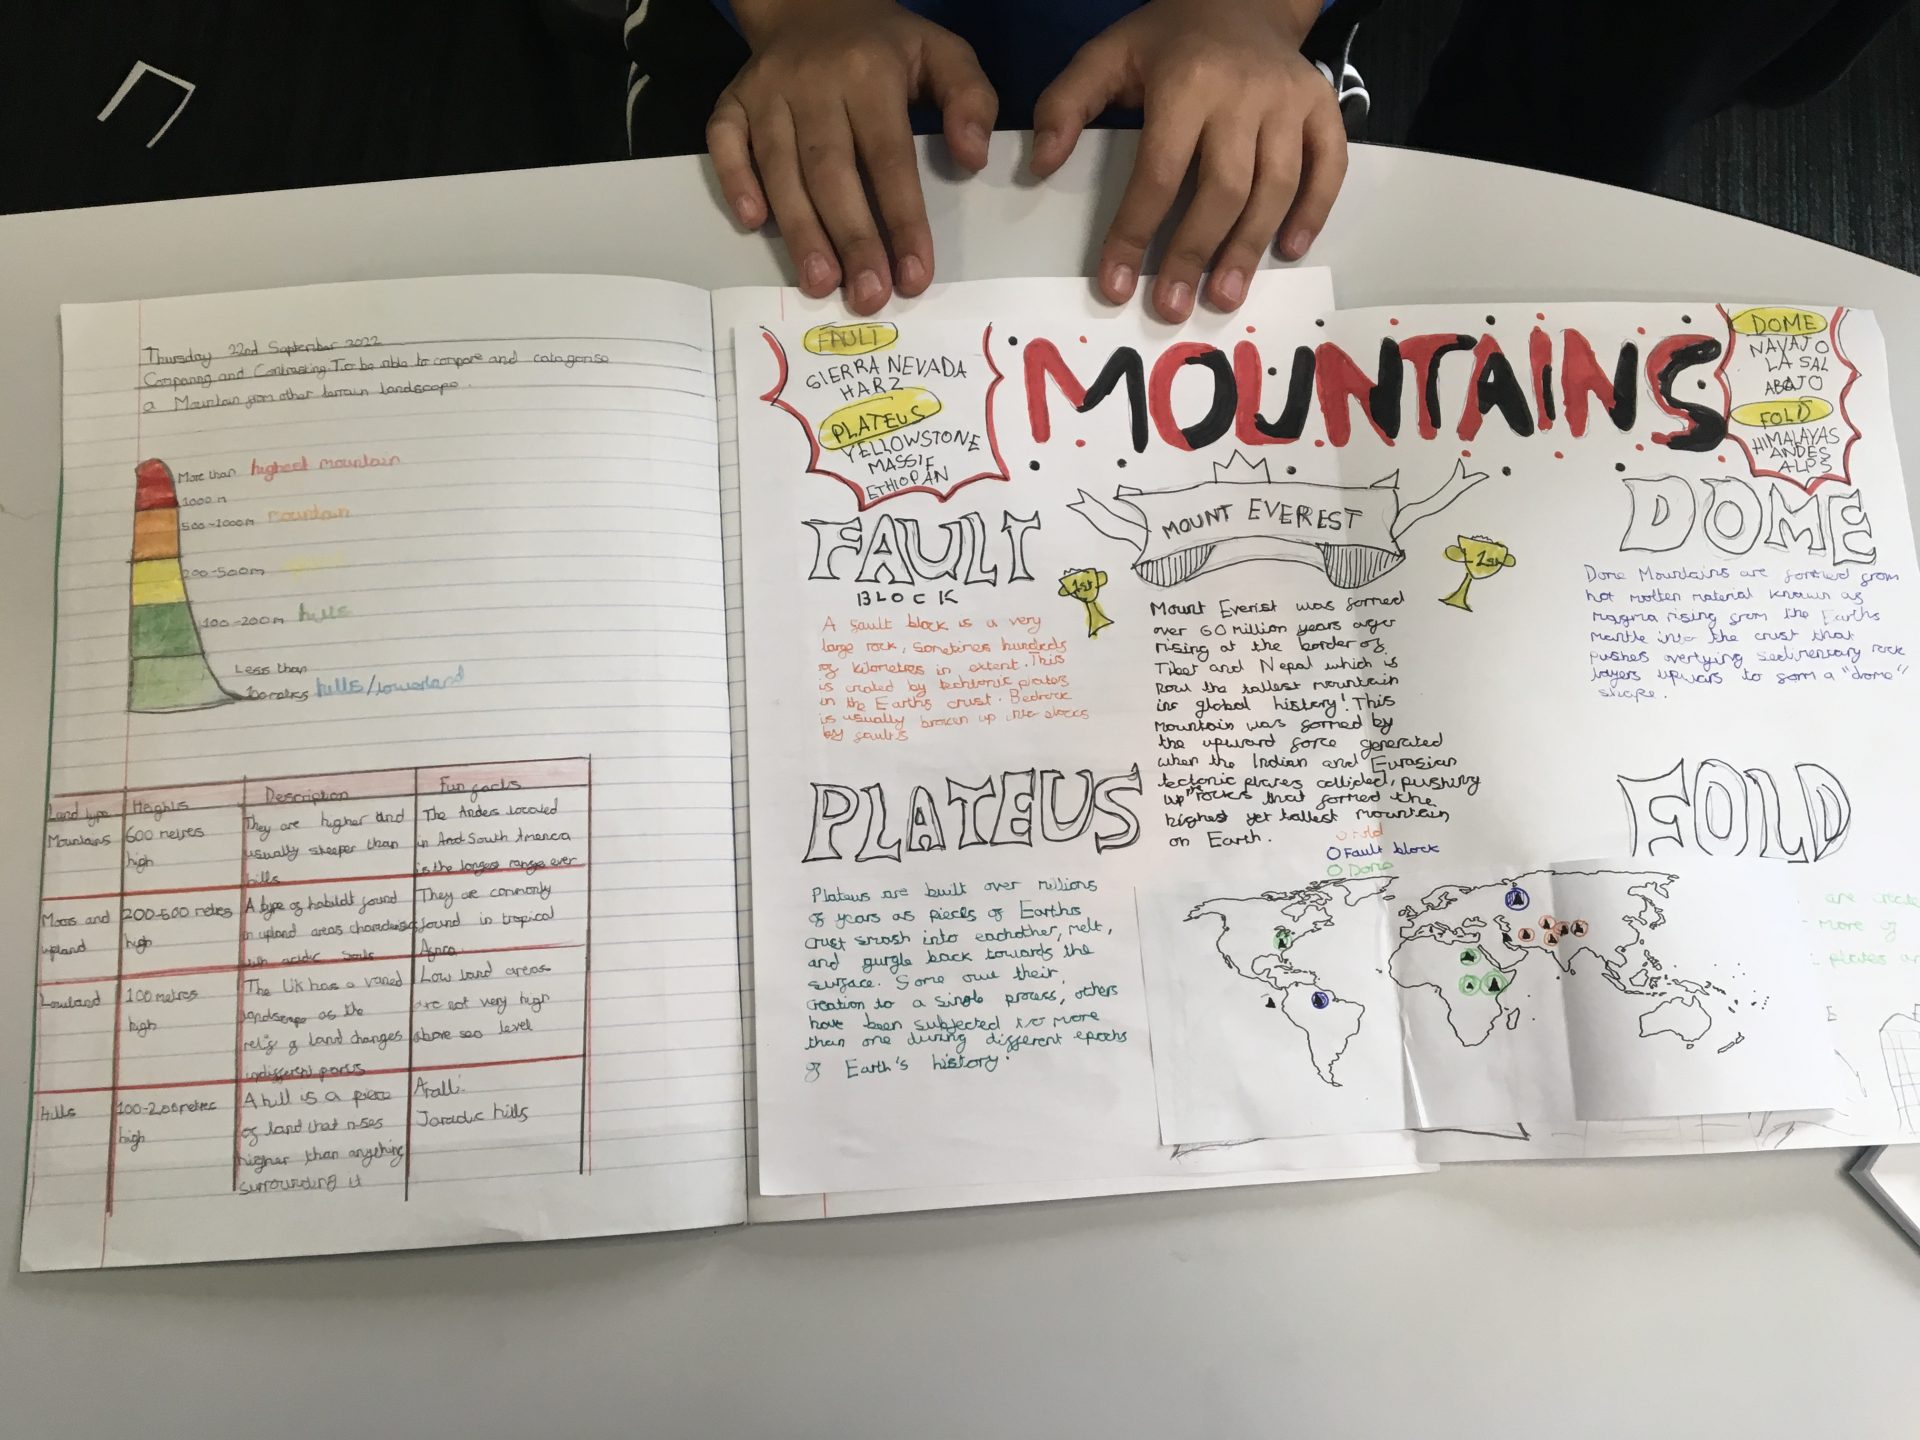 Thursday 22nd September 2022
Comparing and Contrasting: To be able to compare and catagorise
a Mountain from other terrain landscape.
More than highest mountain
1000m
500-1000m mountain
200-500m
100-200m hills
Less than
100 metres hills/lowerland
Land type Heights Description Fun facts
Mountains 600 metres high They are higher and usually steeper than hills The Andes located in And South America is the longest range ever
Moors and upland 200-600 metres high A type of habitat found in upland areas with acidic soils They are commonly found in tropical Africa
Lowland 100 metres high The UK has a varied landscape as the of land changes indifferent parts Low land areas are not very high above sea level
Hills 100-200 metres high A hill is a piece of land that rises higher than anything surrounding it hills
FAULT
SIERRA NEVADA
HARZ
PLATEUS
YELLOWSTONE
MASSIF
ETHIOPAN
MOUNTAINS
DOME
NAVAJO
LA SAL
ABAJO
FOLD
HIMALAYAS
ANDES
ALPS
FAULT
BLOCK
A fault block is a very
large rock, sometimes hundreds
of kilometres in extent. This
is created by techtonic plates
in the Earth's crust. Bedrock
is usually broken up into blocks
by faults
PLATEUS
Plateus are built over millions
of years as pieces of Earths
crust smash into eachother, melt,
and gurgle back towards the
surface. Some owe their
creation to a single process, others
have been subjected to more
than one during different epochs
of Earth's history.
MOUNT EVEREST
1st
1st
Mount Everist was formed
over 60 million years
rising at the border of
Tibet and Nepal which is
now the tallest mountain
in global history! This
mountain was formed by
the upward force generated
when the Indian and Eurasian
tectonic plates collided, pushing
up rocks that formed the
highest yet tallest mountain
on Earth.
Fold
Fault block
Dome
DOME
Dome Mountains are formed from
hot molten material known as
magma rising from the Earths
mantle into the crust that
pushes overlying sedimentary rock
layers upwars to form a "dome"
shape.
FOLD
are
more of
plates
E